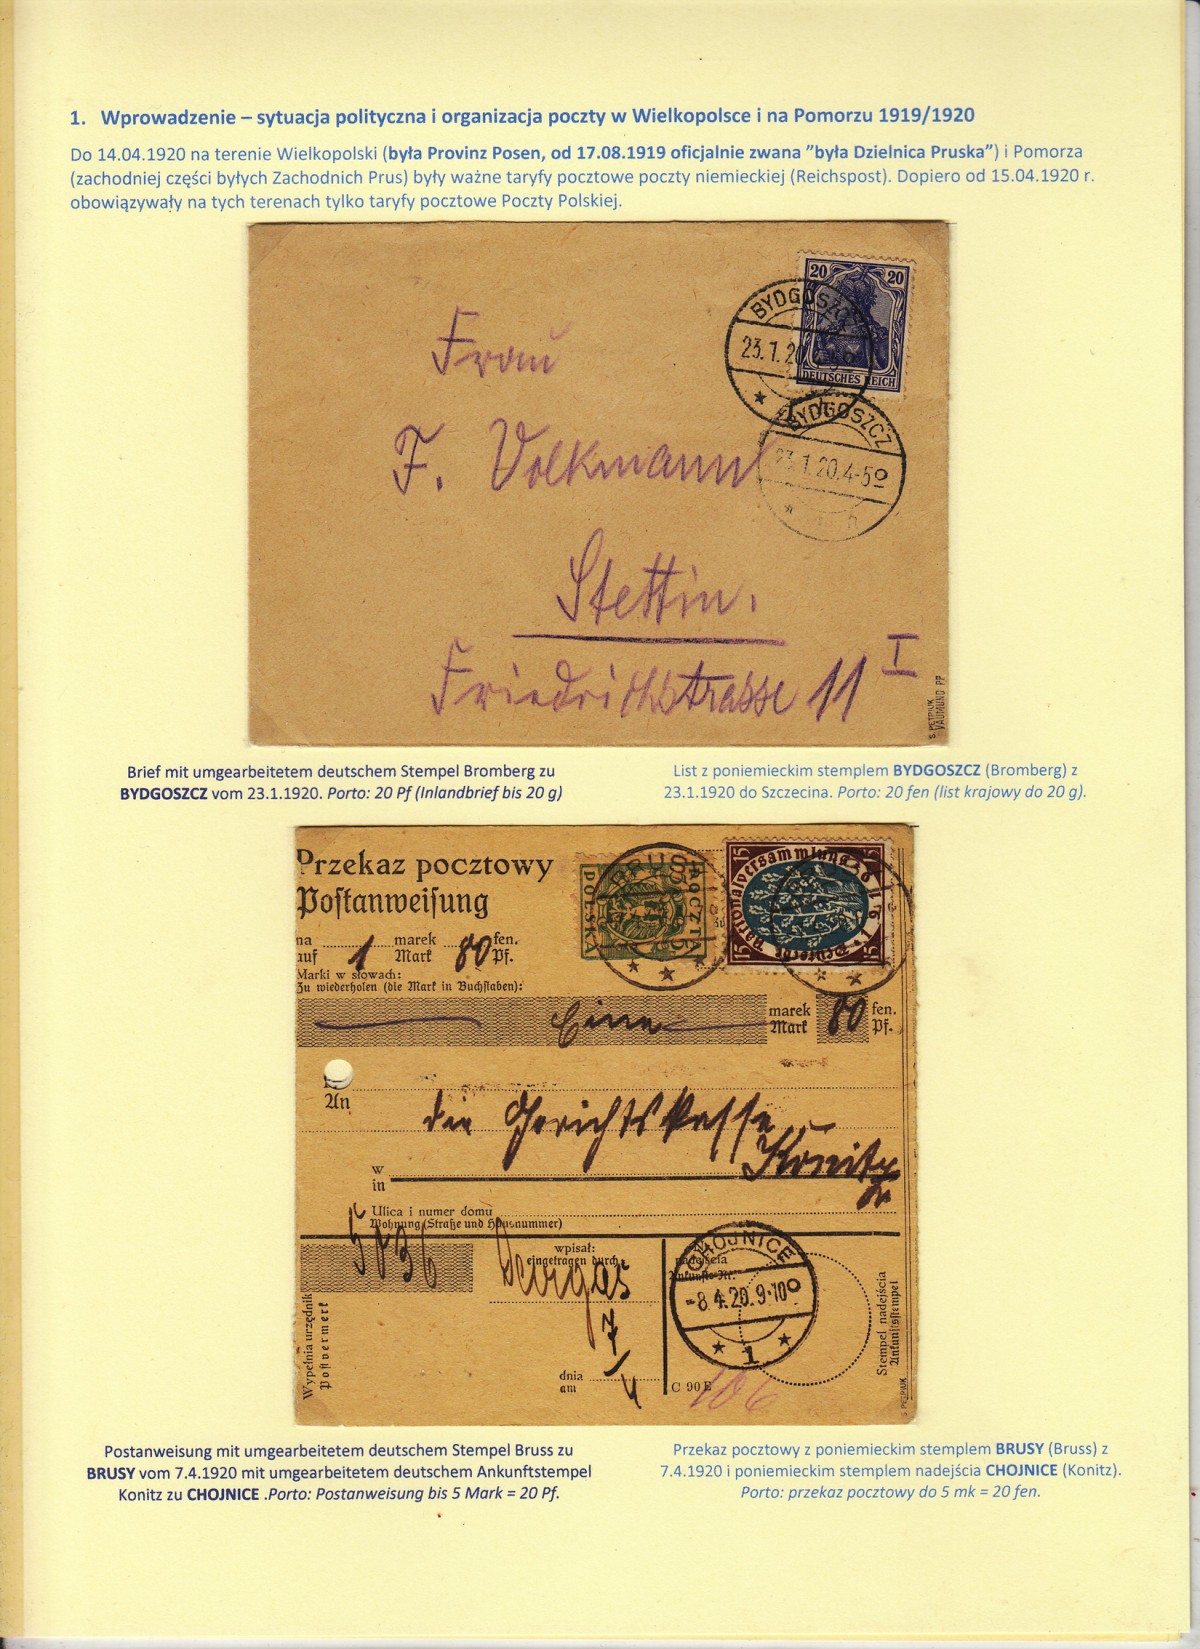 1. Wprowadzenie – sytuacja polityczna i organizacja poczty w Wielkopolsce i na Pomorzu 1919/1920
Do 14.04.1920 na terenie Wielkopolski (była Provinz Posen, od 17.08.1919 oficjalnie zwana ”była Dzielnica Pruska”) i Pomorza
(zachodniej części byłych Zachodnich Prus) były ważne taryfy pocztowe poczty niemieckiej (Reichspost). Dopiero od 15.04.1920 r.
obowiązywały na tych terenach tylko taryfy pocztowe Poczty Polskiej.
20 20
DEUTSCHES REICH
BYDGOSZCZ
23.1.20
BYDGOSZCZ
23.1.20.4-5
Frau
F. Volkmann
Stettin.
Friedrichstrasse 11 I
S. PETRIUK
Brief mit umgearbeitetem deutschem Stempel Bromberg zu
BYDGOSZCZ vom 23.1.1920. Porto: 20 Pf (Inlandbrief bis 20 g)
List z poniemieckim stemplem BYDGOSZCZ (Bromberg) z
23.1.1920 do Szczecina. Porto: 20 fen (list krajowy do 20 g).
Przekaz pocztowy
Postanweisung
na 1 marek 80 fen.
auf Mark Pf.
Marki w słowach:
Zu wiederholen (die Mark in Buchstaben):
Eine marek 80 fen.
Mark Pf.
POCZTA
POLSKA
5
BRUSY
15 15
Deutsche Nationalversammlung 1919
15 15
An die Gerichtskasse
w
in
Könitz
Ulica i numer domu
Wohnung (Straße und Hausnummer)
5036
wpisał:
eingetragen durch:
7/4
dnia
am
nadejścia
Ankunfts-Nr.
CHOJNICE
-8.4.20.9-10
1
C 90
106
Wypełnia urzędnik
Postvermerk
Stempel nadejścia
Ankunftsstempel
S. PETRIUK
Postanweisung mit umgearbeitetem deutschem Stempel Bruss zu
BRUSY vom 7.4.1920 mit umgearbeitetem deutschem Ankunftstempel
Konitz zu CHOJNICE .Porto: Postanweisung bis 5 Mark = 20 Pf.
Przekaz pocztowy z poniemieckim stemplem BRUSY (Bruss) z
7.4.1920 i poniemieckim stemplem nadejścia CHOJNICE (Konitz).
Porto: przekaz pocztowy do 5 mk = 20 fen.